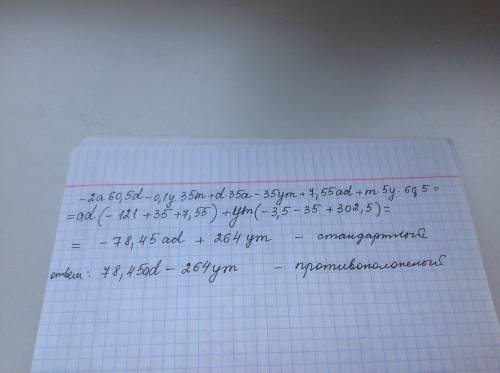 -2a 60,5d - 0,1y 35m + d 35a - 35ym + 7,55ad + m 5y · 60,5 =
= ad (-121 + 35 + 7,55) + ym (-3,5 - 35 + 302,5) =
= -78,45 ad + 264 ym - стандартный
ответ: 78,45ad - 264 ym - противоположеный